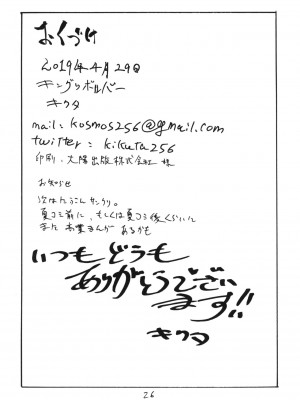 おくづけ
2019年4月29日
キングリボルバー
キクタ
mail : kosmos256@gmail.com
twitter : kikuta256
印刷 : 大陽出版株式会社 様
お知らせ
次は
夏コミ前に、もしくは夏コミ後くらいに
また 本業まんが あるかも
いつも どうも
ありがとうでござい
ます!!
キクタ
26